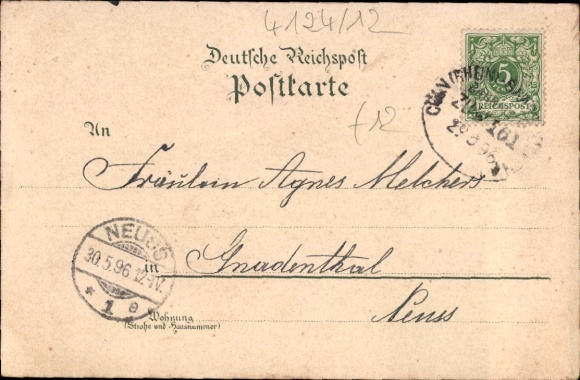 4124/12
Deutsche Reichspost
Postkarte
5
REICHSPOST
161
An
f12
Fräulein Agnes Melchers
NEUSS
30.5.96 12-1V.
* 1 e *
in
Gnadenthal
Neuss
Wohnung
(Straße und Hausnummer)